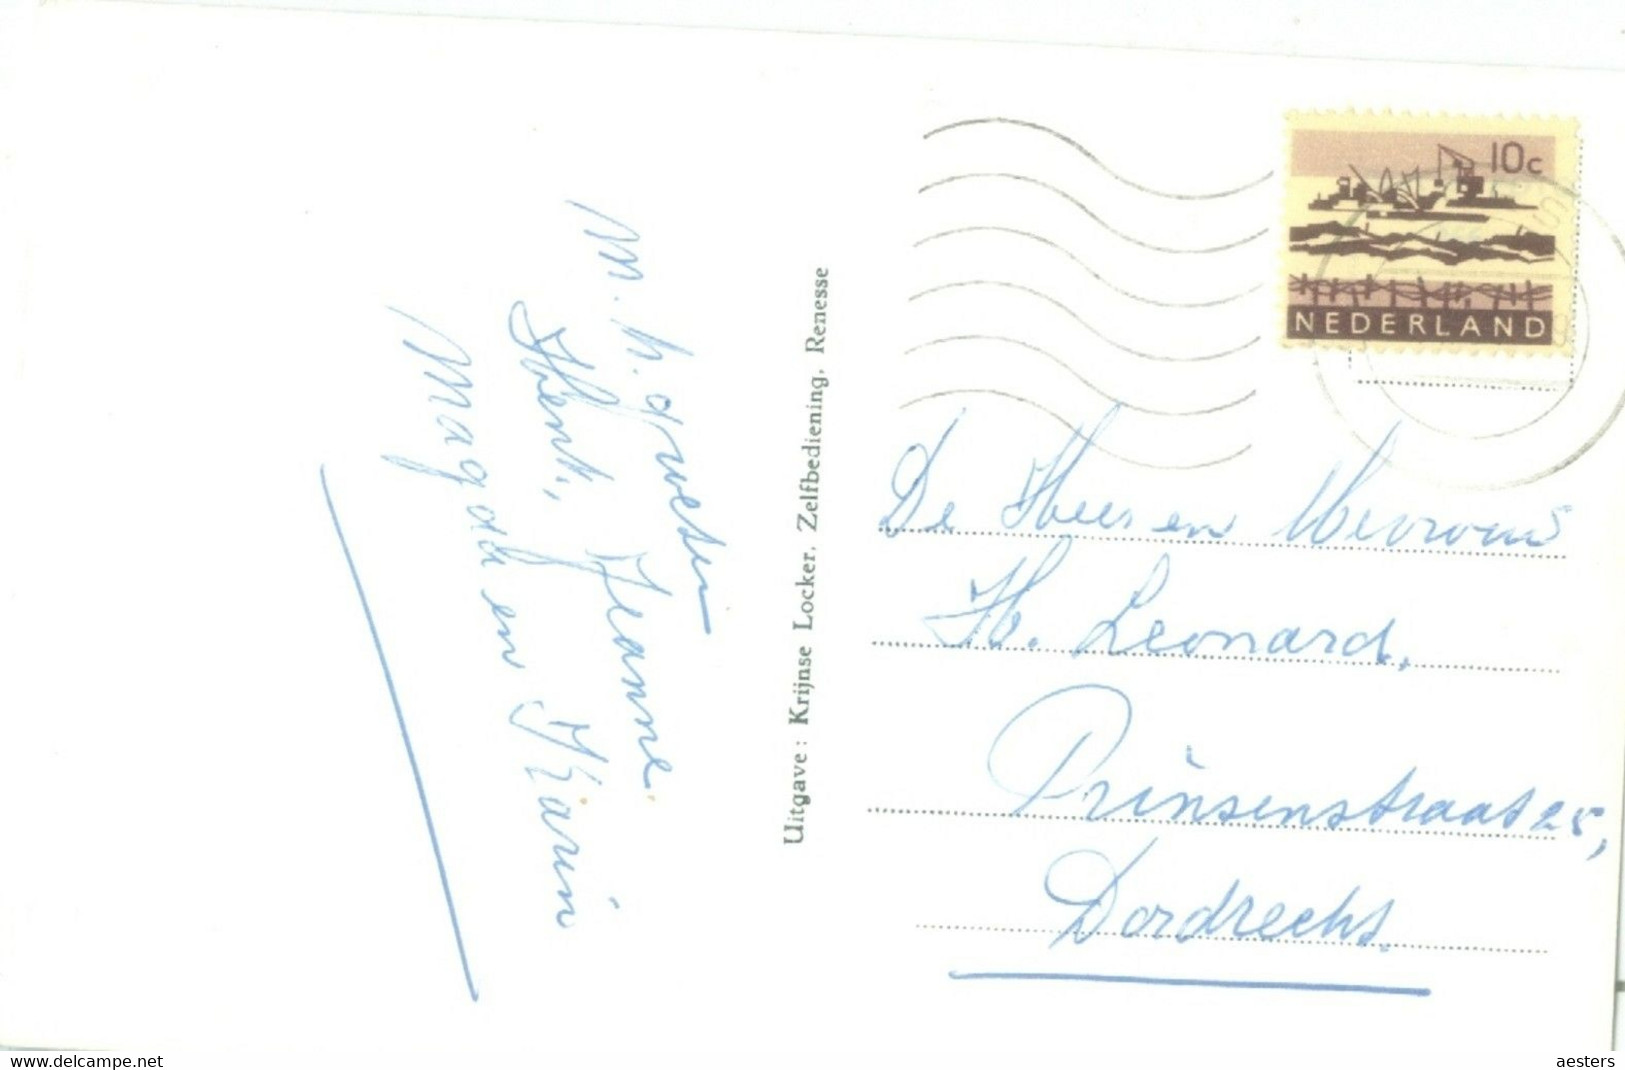 M. h. groeten
Henk, Jeanne
Magda en Karin
Uitgave: Krijnse Locker, Zelfbediening, Renesse
10c
NEDERLAND
De Heer en Mevrouw
H. Leonard.
Prinsenstraat 25,
Dordrecht.
www.delcampe.net
aesters